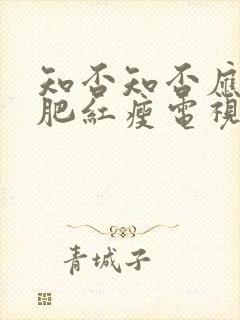 知否知否應
肥紅瘦電視
青城子